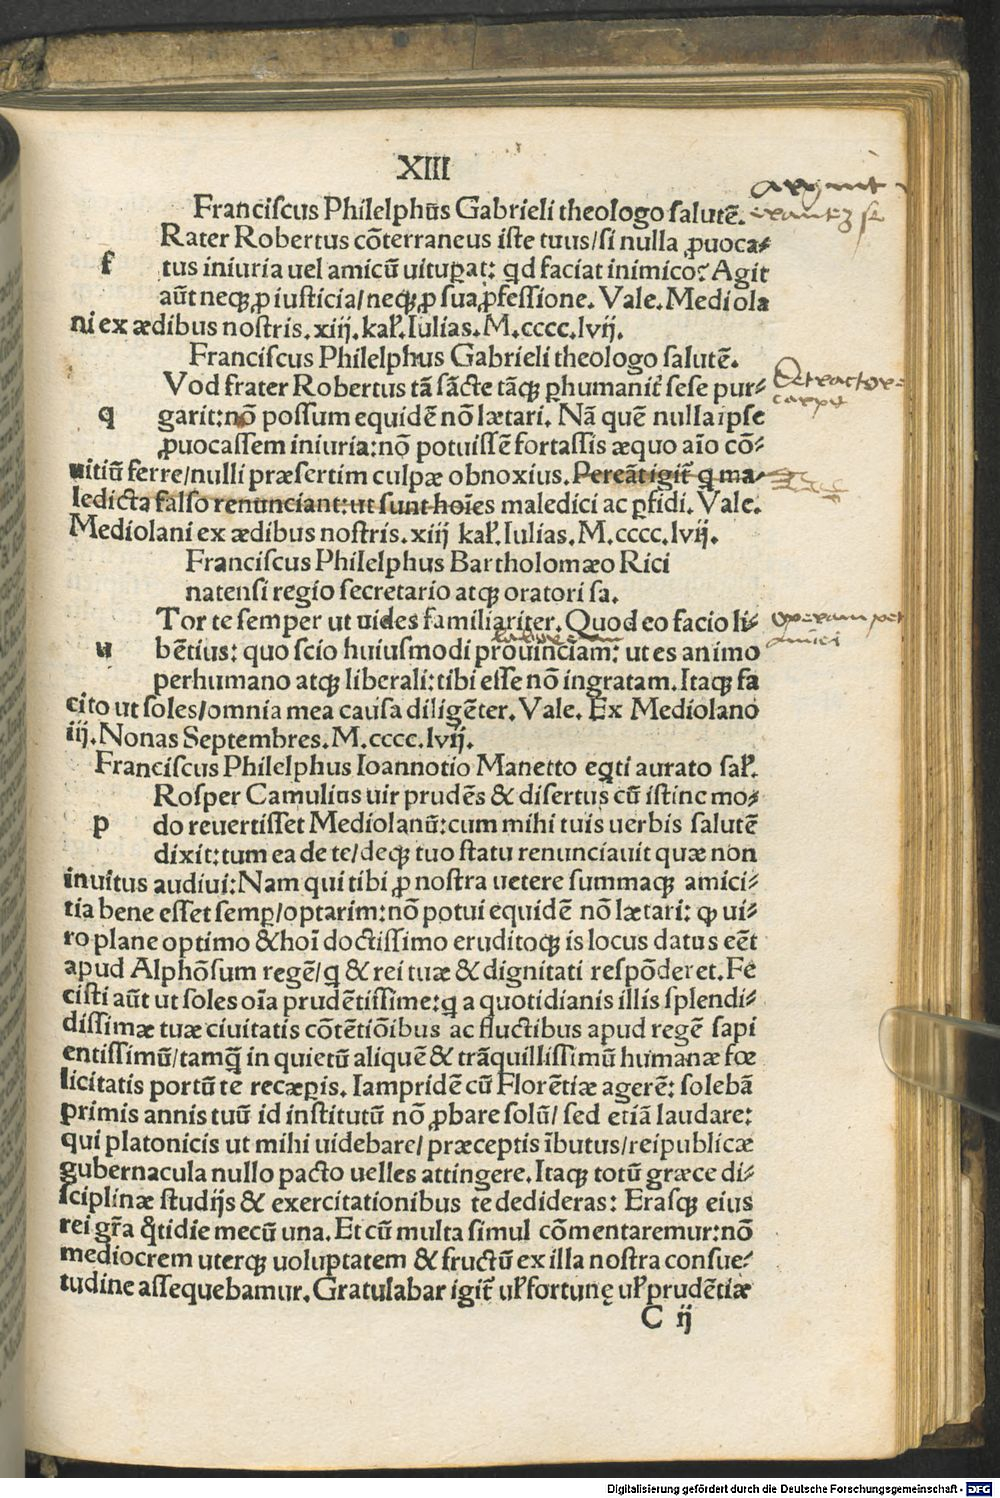 XIII
Franciſcus Philelphus Gabrieli theologo ſalutē.
Rater Robertus cōterraneus iſte tuus/ſi nulla ꝓuoca⸗
f tus iniuria uel amicū uituꝑat: qd faciat inimico? Agit
aūt neqꝫ ꝓ iuſticia/neqꝫ ꝓ ſua ꝓfeſſione. Vale. Mediola
ni ex ædibus noſtris. xiij. kaƚ. Iulias. M. cccc. lvij.
Franciſcus Philelphus Gabrieli theologo ſalutē.
Vod frater Robertus tā ſācte tāqꝫ ꝑhumanit̄ ſeſe pur⸗
q garit: nō poſſum equidē nō lætari. Nā quē nulla ipſe
ꝓuocaſſem iniuria: nō potuiſſē fortaſſis æquo aīo cō⸗
uitiū ferre/nulli præſertim culpæ obnoxius. Pereāt igit̄ q ma⸗
ledicta falſo renunciant: ut ſunt hoīes maledici ac ꝑfidi. Vale.
Mediolani ex ædibus noſtris. xiij kaƚ. Iulias. M. cccc. lvij.
Franciſcus Philelphus Bartholomæo Rici
natenſi regio ſecretario atqꝫ oratori ſa.
Tor te ſemper ut uides familiariter. Quod eo facio li⸗
u bētius: quo ſcio huiuſmodi prouinciam: ut es animo
perhumano atqꝫ liberali: tibi eſſe nō ingratam. Itaqꝫ fa
cito ut ſoles/omnia mea cauſa diligēter. Vale. Ex Mediolano
iij. Nonas Septembres. M. cccc. lvij.
Franciſcus Philelphus Ioannotio Manetto eqti aurato ſaƚ.
Roſper Camulius uir prudēs & diſertus cū iſtinc mo⸗
p do reuertiſſet Mediolanū: cum mihi tuis uerbis ſalutē
dixit: tum ea de te/deqꝫ tuo ſtatu renunciauit quæ non
inuitus audiui: Nam qui tibi ꝓ noſtra uetere ſummaqꝫ amici⸗
tia bene eſſet ſemꝑ/optarim: nō potui equidē nō lætari: ꝙ ui⸗
ro plane optimo & hoī doctiſſimo eruditoqꝫ is locus datus eēt
apud Alphōſum regē/q & rei tuæ & dignitati reſpōderet. Fe
ciſti aūt ut ſoles oīa prudētiſſime: q a quotidianis illis ſplendi⸗
diſſimæ tuæ ciuitatis cōtētiōibus ac fluctibus apud regē ſapi
entiſſimū/tamq̄ in quietū aliquē & trāquilliſſimū humanæ fœ
licitatis portū te recæꝑis. Iampridē cū Florētiæ agerē: ſolebā
primis annis tuū id inſtitutū nō ꝓbare ſolū/ ſed etiā laudare:
qui platonicis ut mihi uidebare/ præceptis ībutus/reipublicæ
gubernacula nullo pacto uelles attingere. Itaqꝫ totū græce di⸗
ſciplinæ ſtudijs & exercitationibus te dedideras: Eraſqꝫ eius
rei gr̄a q̄tidie mecū una. Et cū multa ſimul cōmentaremur: nō
mediocrem uterqꝫ uoluptatem & fructū ex illa noſtra conſue⸗
tudine aſſequebamur. Gratulabar igit̄ uƚ fortunę uƚ prudētiæ
C ij
Digitalisierung gefördert durch die Deutsche Forschungsgemeinschaft - DFG